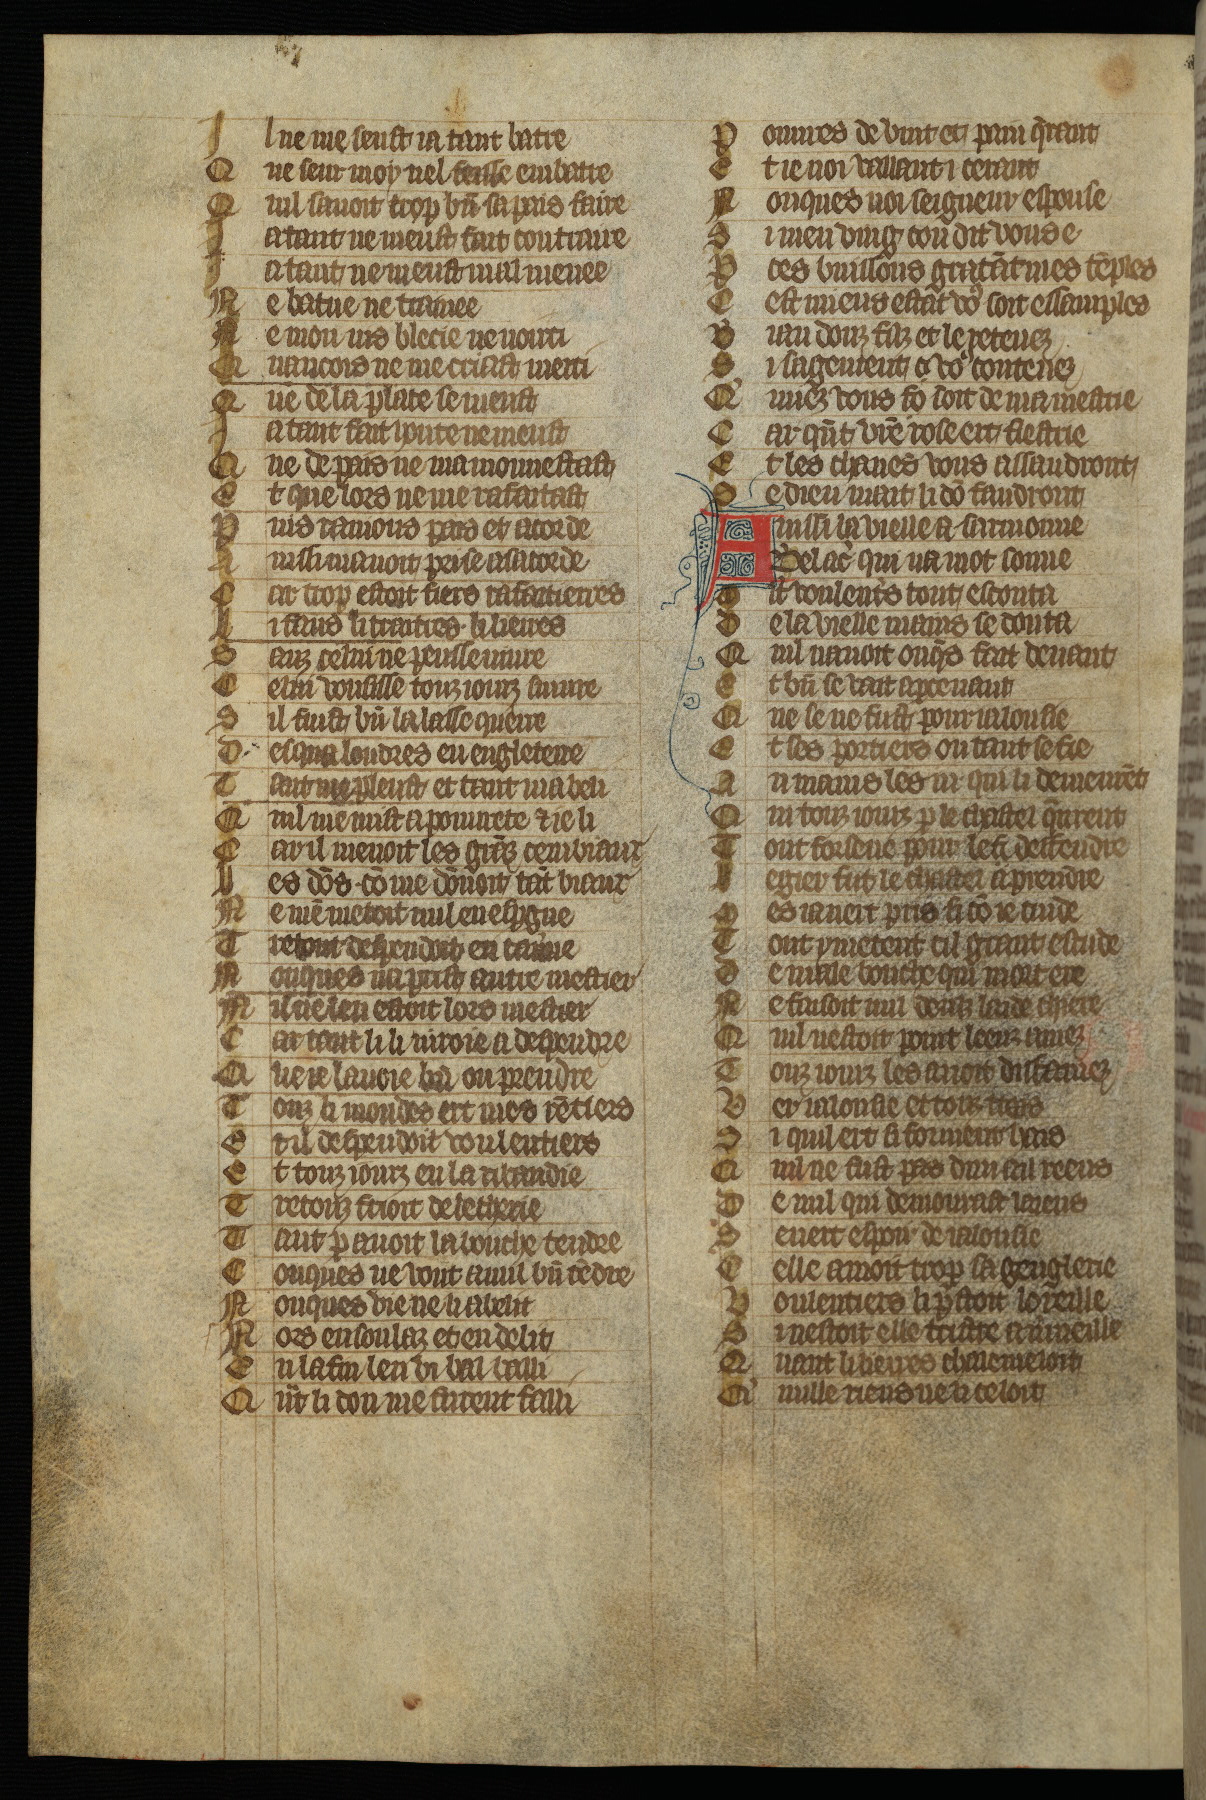 I l ne me seust ia tant batre
Q ue seur moy nel feisse embatre
Q uil sauoit trop bn̄ sa pais faire
J a tant ne meust fait contraire
J a tant ne meust mal menee
N e batue ne trainee
N e mon uis blecie ne norci
Q uancois ne me criast merci
Q ue de la place se meust
J a tant fait honte ne meust
Q ue de pais ne mamonnestast
E t que lors ne me rafaitast
P uis rauions pais et acorde
A inssi mauoit prise a sa corde
C ar trop estoit fiers rafaitierres
L i faus li traitres li lierres
S anz celui ne peusse uiure
C elui vousisse touz iourz suiure
S il fuist bn̄ lalasse querre
D esqua londres en engleterre
T ant me pleust et tant mabeli
Q uil me mist a pourete & ie li
C ar il menoit les grāz cembiaux
L es dōs cō me dōnoit tāt biaux
N e mē metoit nul en espgne
T retout despendoit en tauerne
N onques na prist autre mestier
N il nel en estoit lors mestier
C ar tant li liuroie a despendre
Q ue ie lauoie bn̄ ou prendre
T ouz li mondes ert mes rētiers
E t il despendoit voulentiers
E t touz iourz en la ribaudie
T retouz frioit de lecherie
T ant p auoit la bouche tendre
C onques ne vout a nul bn̄ tēdre
N onques viure ne li abelit
N ors en soulaz et en delit
E n la fin len vi bal bailli
Q n̄t li don me furent failli
P oures deuint et pain querant
E t ie noi vaillant i cerant
N onques noi seigneur espouse
S i men ving con dit vous e
P ces buissons gratāt mes tēples
C est miens estāt vo' soit essamples
B iau douz filz et le retenez
S i sagement q̄ vo' contenez
Q miez vous sō soit de ma mestrie
C ar qn̄t vrē rose ert flestrie
E t les chanes vous assaudront
C e dieu mait li dō faudront
A inssi la vielle a sarmonne
B elac' qui na mot sonne
M lt voulentiers tout escouta
D e la vielle mains se douta
Q uil nauoit onqs̄ fait deuant
E t bn̄ se vait apceuant
Q ue se ne fust pour ialousie
E t ses portiers ou tant se fie
A u mains les iii qui li demeurēt
Q ui touz iourz p le chastel queurent
T out forsene pour le deffendre
L egier fut le chastel a prendre
E s ia nert pris si cō ie cuide
T ant y metent cil grant estude
D e male bouche qui mort ere
N e faisoit nul deulz laide chiere
Q uil nestoit point leenz amez
T ouz iourz les auoit diffamez
V er ialousie et touz trais
S i quil ert si forment hais
Q uil ne fust pas dun ail reens
D e nul qui demourast laiens
S e nert espoir de ialousie
C elle amoit trop sa genglerie
V oulentiers li pstoit loreille
S i nestoit elle triste a merueille
Q uant li lierres chalemeloit
Q nulle riens ne li celoit